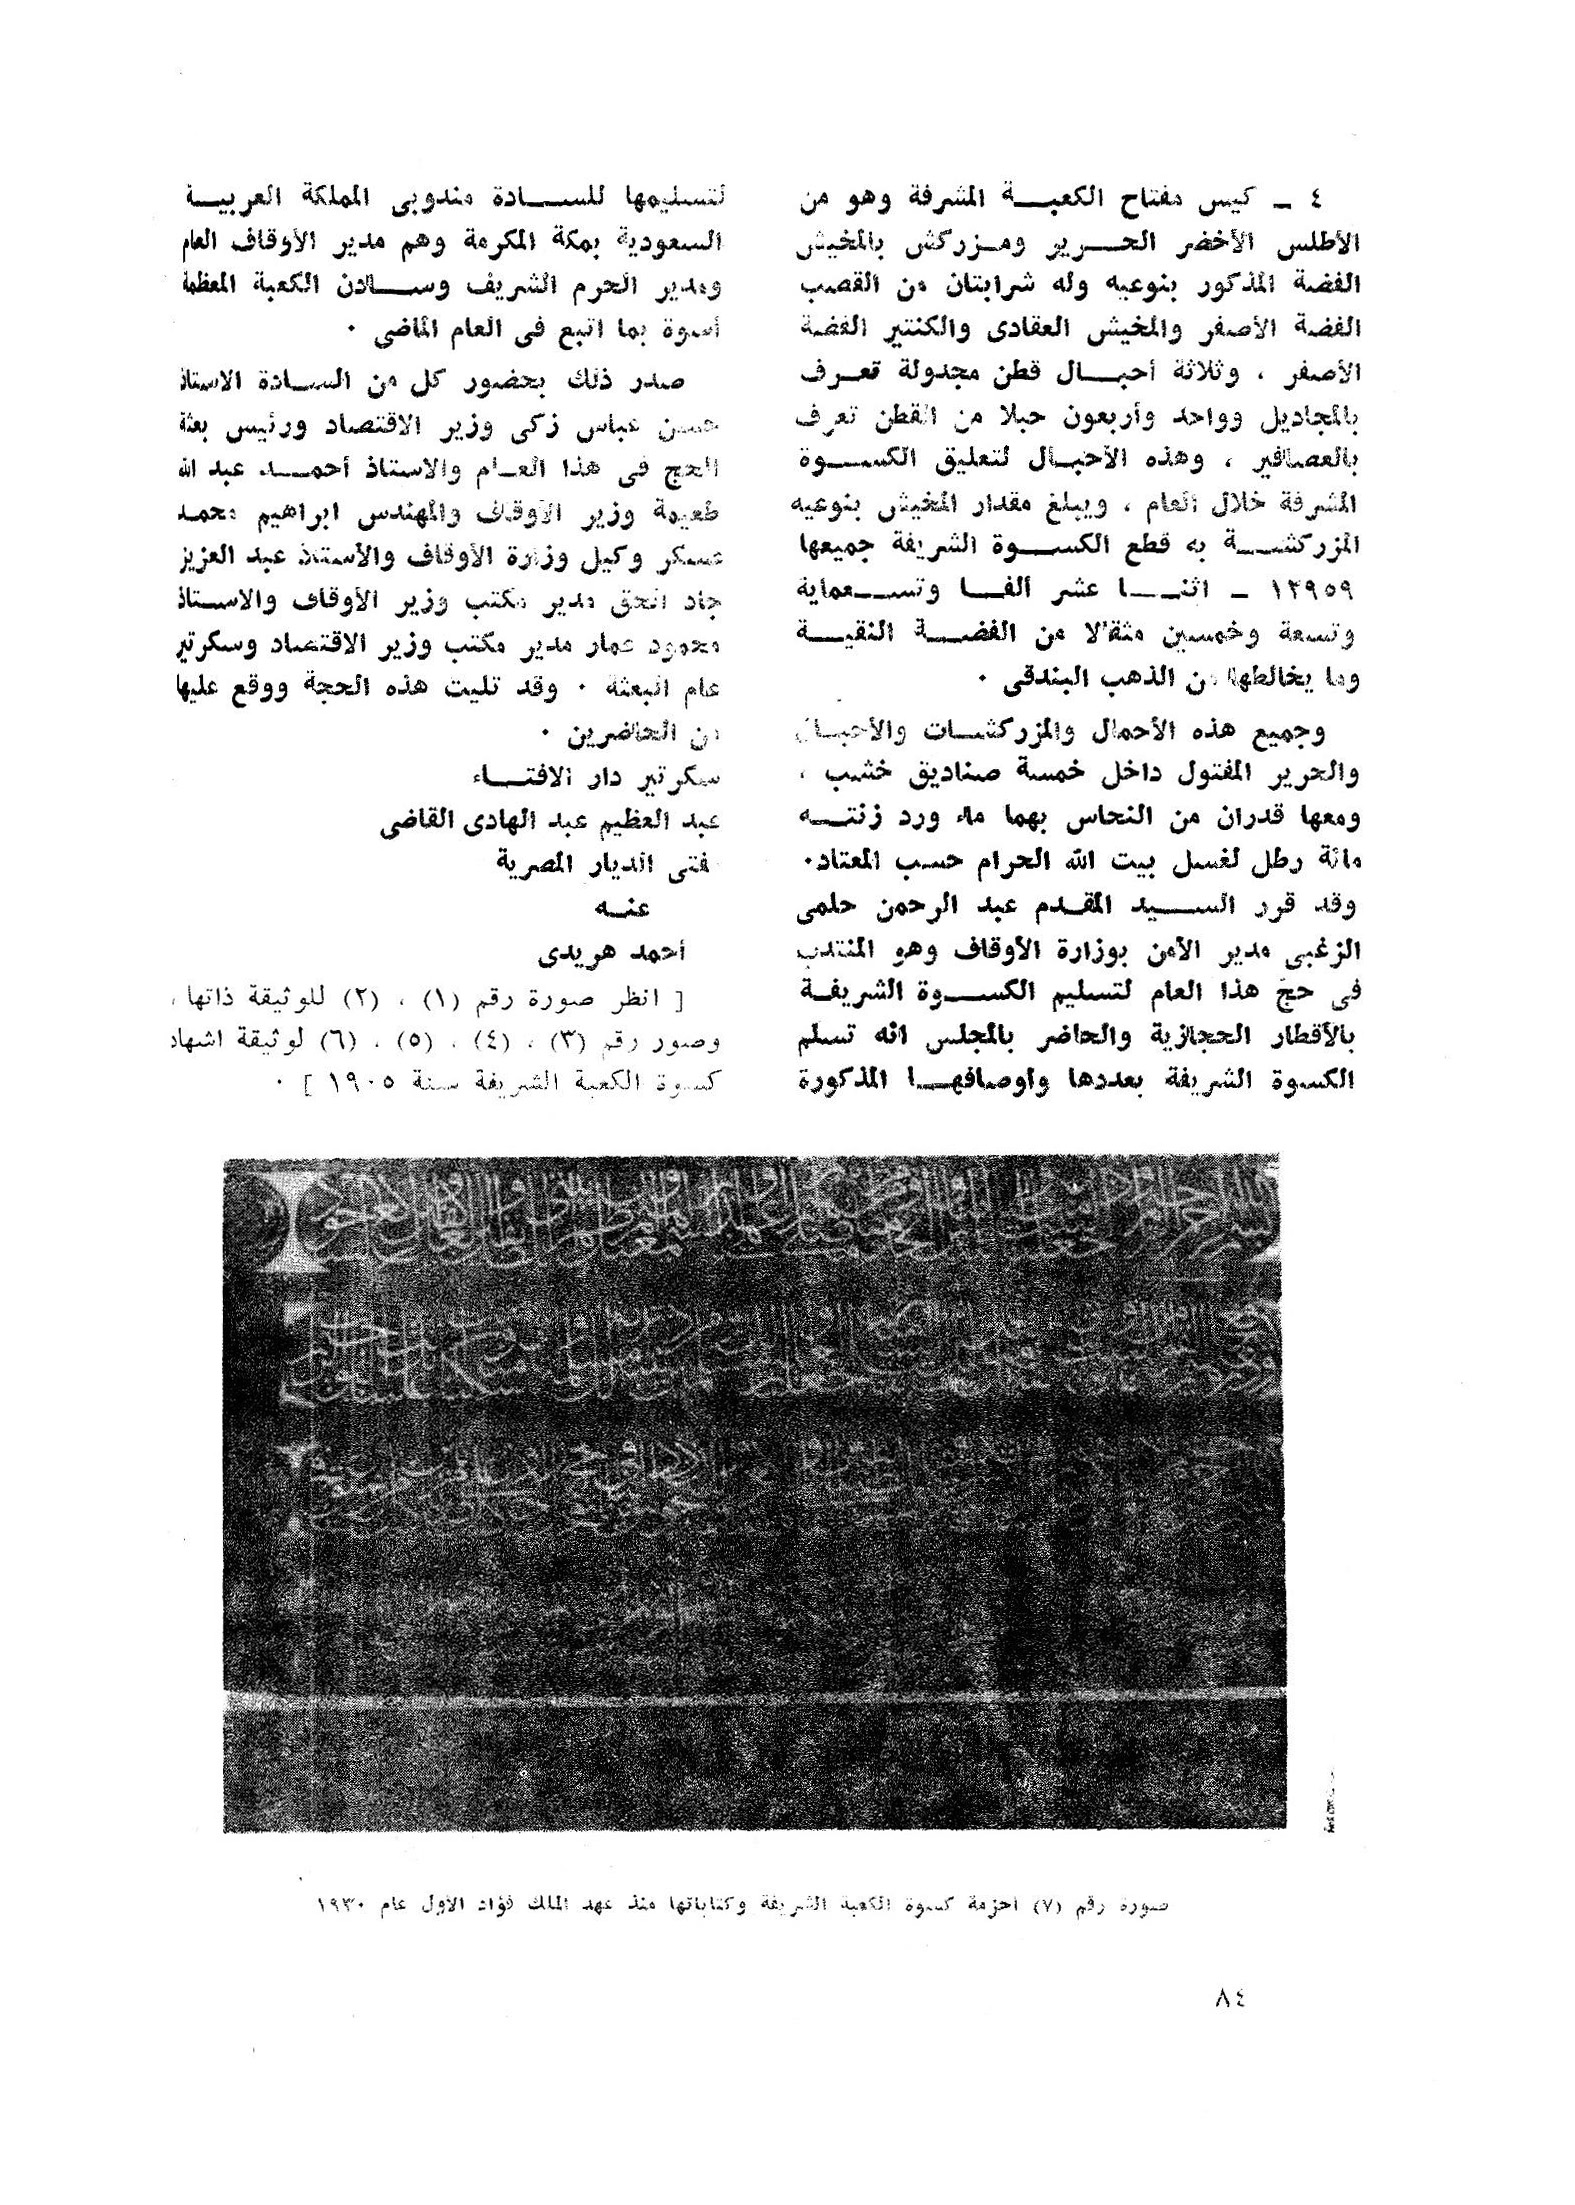 ٤ ـ كيس مفتاح الكعبة المشرفة وهو من
الأطلس الأخضر الحرير ومزركش بالمخيش
الفضة المذكور بنوعيه وله شرابتان من القصب
الفضة الأصفر والمخيش العقادى والكنتير الفضة
الأصفر ، وثلاثة أحبال قطن مجدولة تعرف
بالمجاديل وواحد وأربعون حبلا من القطن تعرف
بالعصافير ، وهذه الأحبال لتعليق الكسوة
المشرفة خلال العام ، ويبلغ مقدار المخيش بنوعيه
المزركشة به قطع الكسوة الشريفة جميعها
١٢٩٥٩ ـ اثنا عشر ألفا وتسعماية
وتسعة وخمسين مثقالا من الفضة النقية
وما يخالطها من الذهب البندقى ٠
وجميع هذه الأحمال والمزركشات والأحبال
والحرير المفتول داخل خمسة صناديق خشب ،
ومعها قدران من النحاس بهما ماء ورد زنته
مائة رطل لغسل بيت الله الحرام حسب المعتاد٠
وقد قرر السيد المقدم عبد الرحمن حلمى
الزغبى مدير الأمن بوزارة الأوقاف وهو المنتدب
فى حج هذا العام لتسليم الكسوة الشريفة
بالأقطار الحجازية والحاضر بالمجلس انه تسلم
الكسوة الشريفة بعددها وأوصافها المذكورة
لتسليمها للسادة مندوبى المملكة العربية
السعودية بمكة المكرمة وهم مدير الأوقاف العام
ومدير الحرم الشريف وسادن الكعبة المعظمة
أسوة بما اتبع فى العام الماضى ٠
صدر ذلك بحضور كل من السادة الاستاذ
حسن عباس زكى وزير الاقتصاد ورئيس بعثة
الحج فى هذا العام والاستاذ أحمد عبد الله
طعيمة وزير الأوقاف والمهندس ابراهيم محمد
عسكر وكيل وزارة الأوقاف والأستاذ عبد العزيز
جاد الحق مدير مكتب وزير الأوقاف والاستاذ
محمود عمار مدير مكتب وزير الاقتصاد وسكرتير
عام البعثة ٠ وقد تليت هذه الحجة ووقع عليها
من الحاضرين ٠
سكرتير دار الافتاء
عبد العظيم عبد الهادى القاضى
مفتى الديار المصرية
عنه
أحمد هريدى
[ انظر صورة رقم (١) ، (٢) للوثيقة ذاتها ،
وصور رقم (٣) ، (٤) ، (٥) ، (٦) لوثيقة اشهاد
كسوة الكعبة الشريفة سنة ١٩٠٥ ] ٠
صورة رقم (٧) أحزمة كسوة الكعبة الشريفة وكتاباتها منذ عهد الملك فؤاد الأول عام ١٩٣٠
٨٤